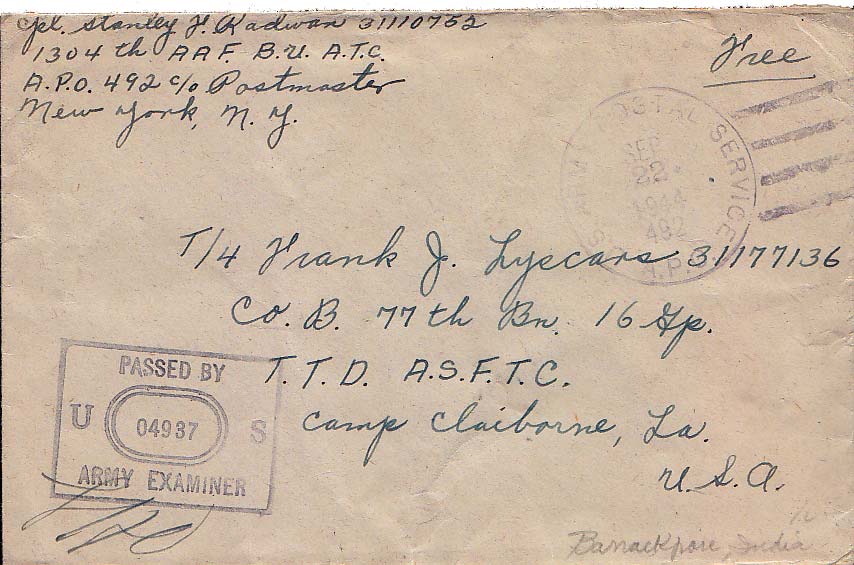 Cpl. Stanley F. Kadwan 31110752
1304 th AAF. B.U. A.T.C.
A.P.O. 492 c/o Postmaster
New York, N.Y.
Free
ARMY POSTAL SERVICE
SEP
22
1944
492
A.P.O.
T/4 Frank J. Lyscars 31177136
Co. B. 77th Bn. 16 Gp.
T.T.D. A.S.F.T.C.
Camp Claiborne, La.
U.S.A.
PASSED BY
U 04937 S
ARMY EXAMINER
Barrackpore, India